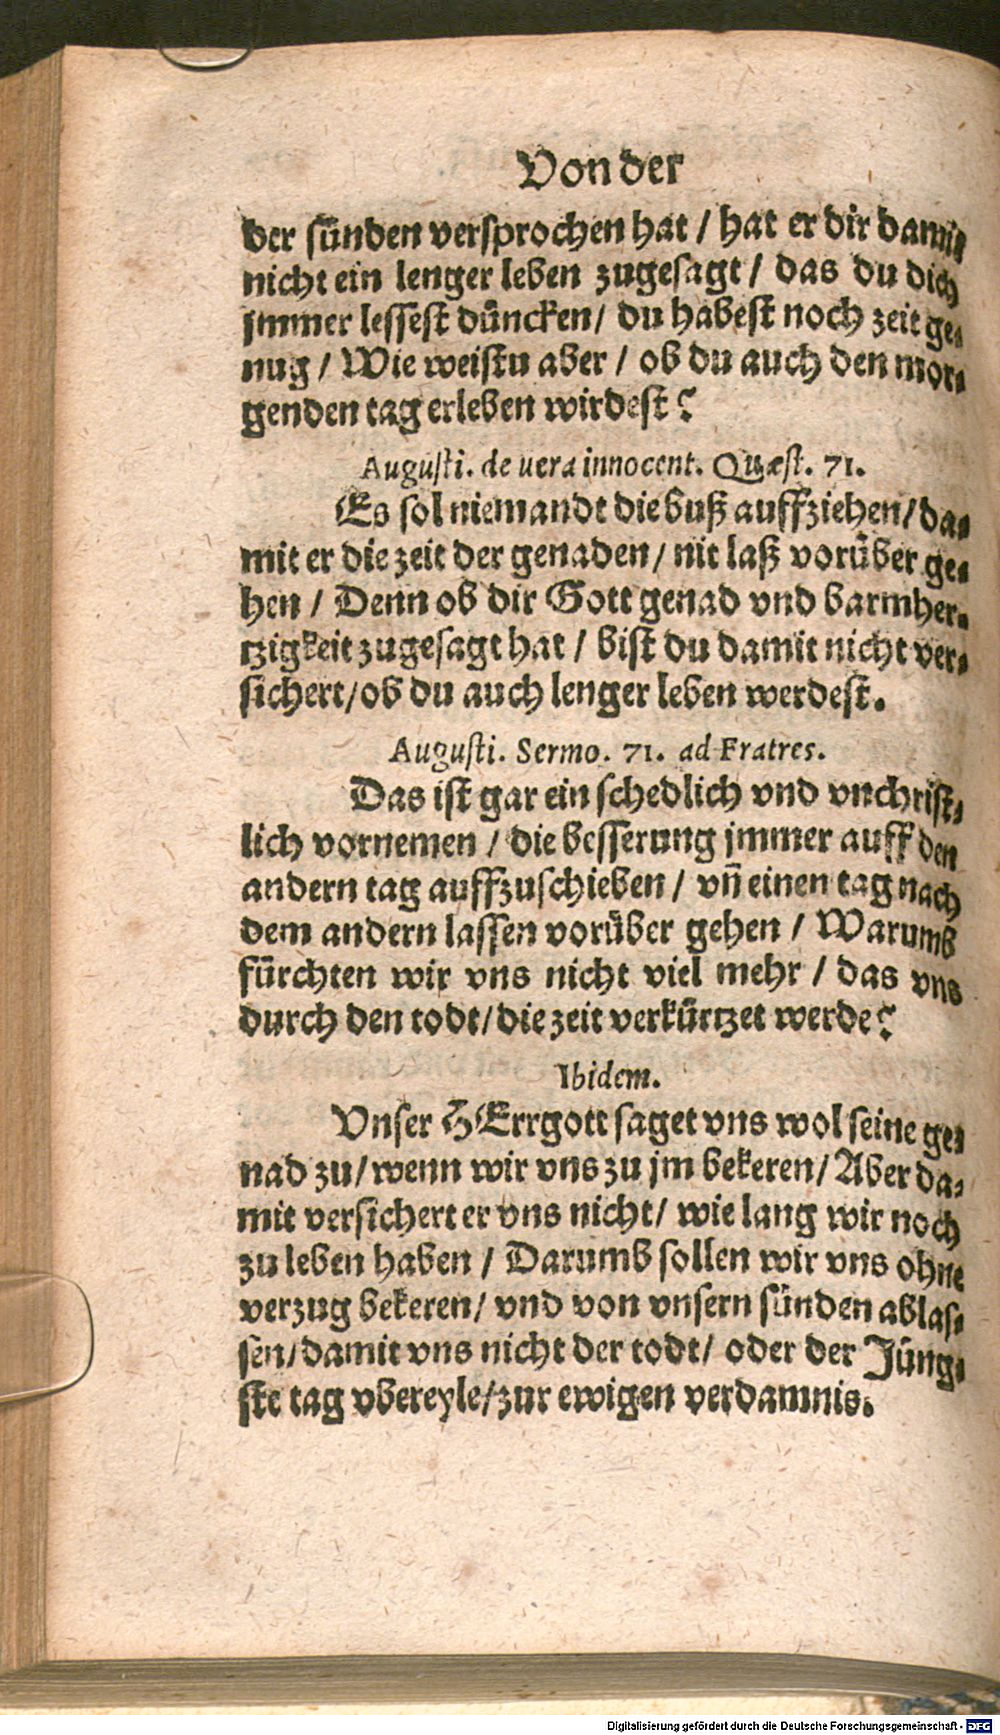 Von der
der sünden versprochen hat / hat er dir damit
nicht ein lenger leben zugesagt / das du dich
jmmer lessest düncken / du habest noch zeit ge⸗
nug / Wie weistu aber / ob du auch den mor⸗
genden tag erleben wirdest?
Augusti. de uera innocent. Quæst. 71.
Es sol niemandt die buß auffziehen / da⸗
mit er die zeit der genaden / nit laß vorüber ge⸗
hen / Denn ob dir Gott genad vnd barmher⸗
tzigkeit zugesagt hat / bist du damit nicht ver⸗
sichert / ob du auch lenger leben werdest.
Augusti. Sermo. 71. ad Fratres.
Das ist gar ein schedlich vnd vnchrist⸗
lich vornemen / die besserung jmmer auff den
andern tag auffzuschieben / vn̄ einen tag nach
dem andern lassen vorüber gehen / Warumb
fürchten wir vns nicht viel mehr / das vns
durch den todt / die zeit verkürtzet werde?
Ibidem.
Vnser HErrgott saget vns wol seine ge⸗
nad zu / wenn wir vns zu jm bekeren / Aber da⸗
mit versichert er vns nicht / wie lang wir noch
zu leben haben / Darumb sollen wir vns ohne
verzug bekeren / vnd von vnsern sünden ablas⸗
sen / damit vns nicht der todt / oder der Jüng⸗
ste tag vbereyle / zur ewigen verdamnis.
Digitalisierung gefördert durch die Deutsche Forschungsgemeinschaft - DFG